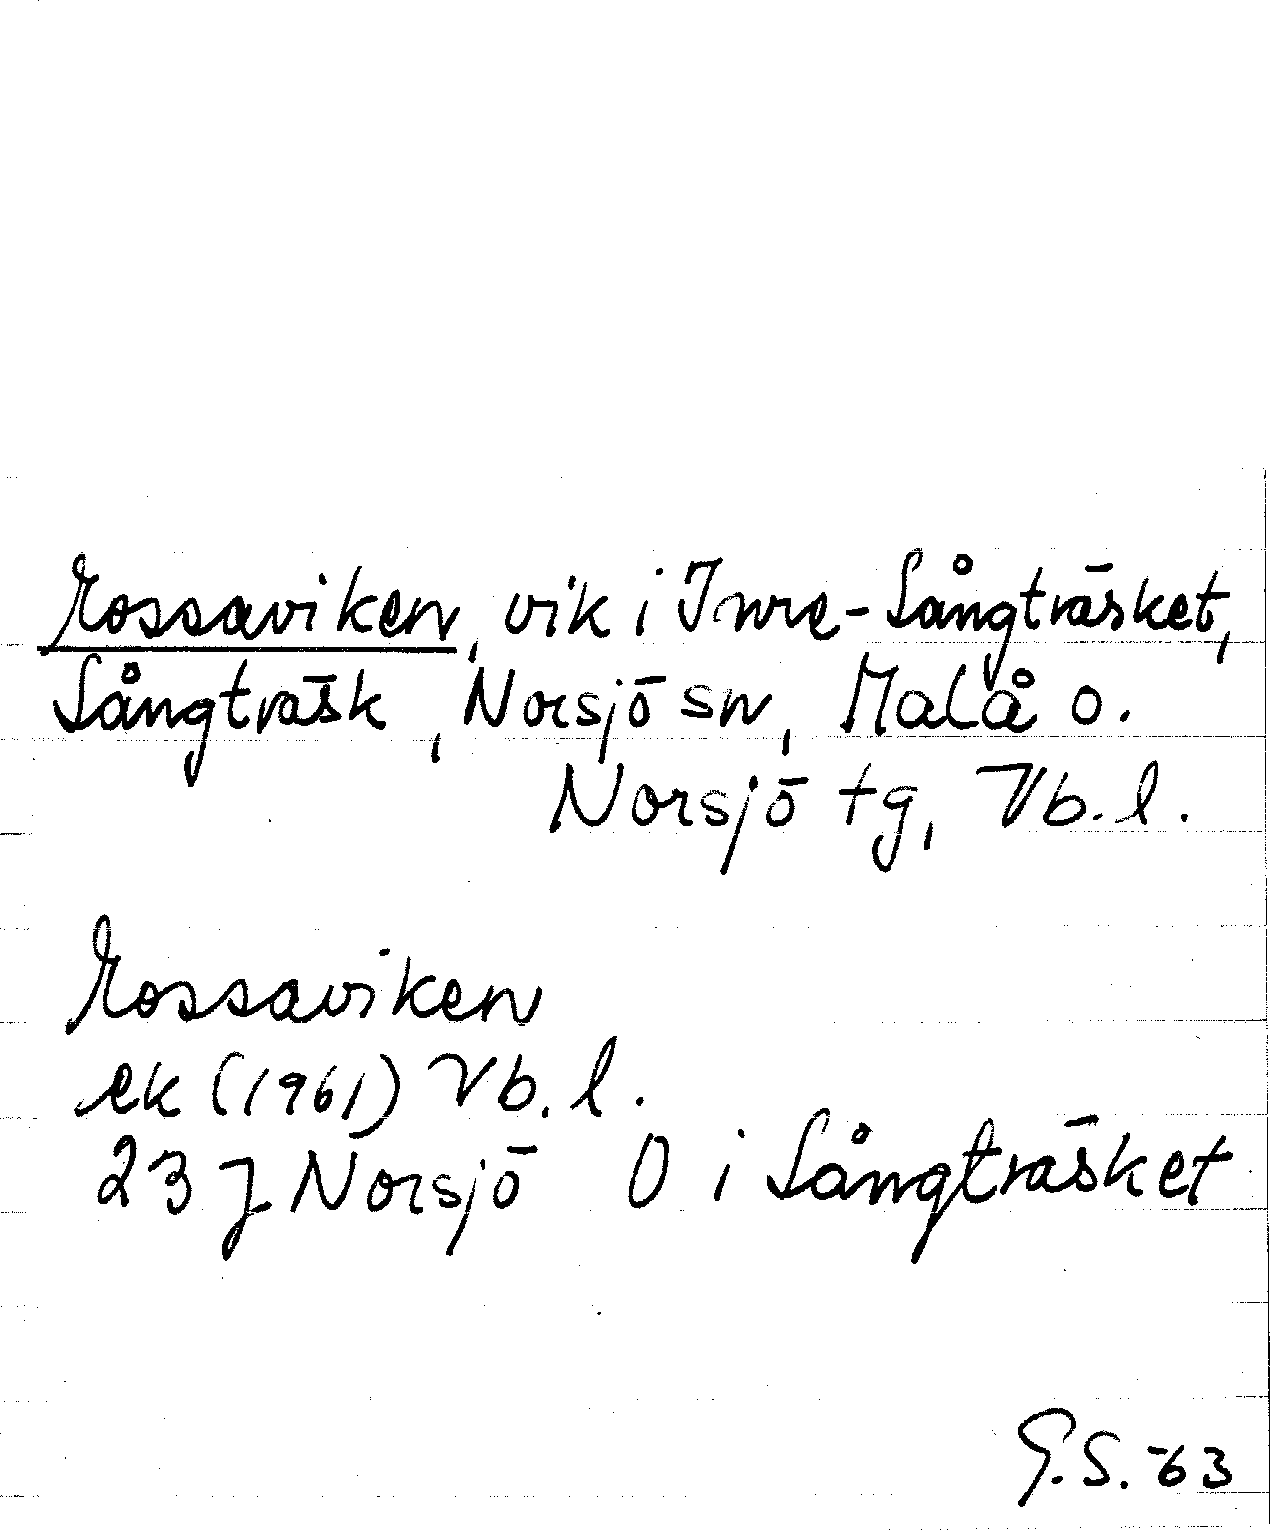 Kossaviken, vik i Inre-Långträsket,
Långträsk, Norsjö sn, Malå o.
Norsjö tg, Vb. l.
Kossaviken
ek (1961) Vb. l.
23 J Norsjö O i Långträsket
G.S. -63